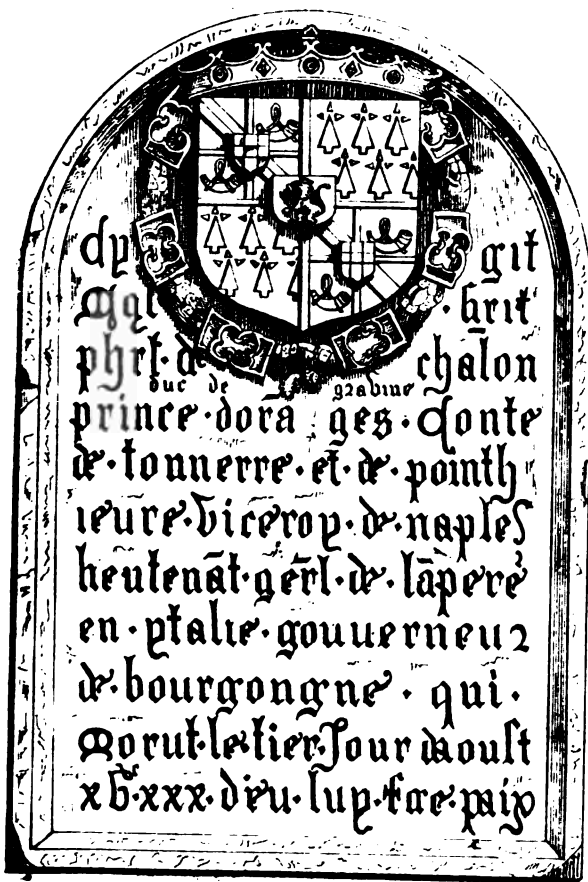 cy git
brit
phrt · de chalon
duc de gravine
prince · dorā ges · Conte
de · tonnerre · et · de · pointh
ieure · viceroy · de · naples
lieutenāt · gēr̄l · de · lāpere
en · ytalie · gouuerneur
de · bourgongne · qui ·
Morut · le · tier · Jour daoust
xv · xxx · dieu · luy · face · paix